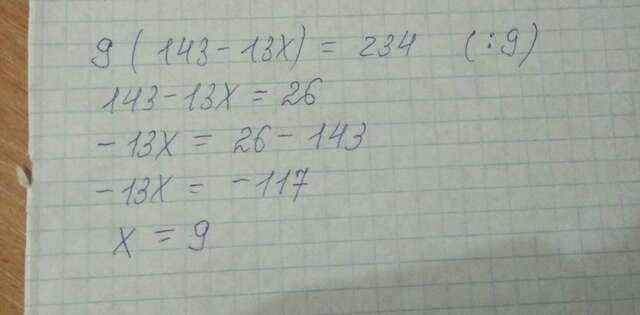 9 ( 143 - 13x) = 234 (:9)
143 - 13x = 26
- 13x = 26 - 143
- 13x = -117
x = 9